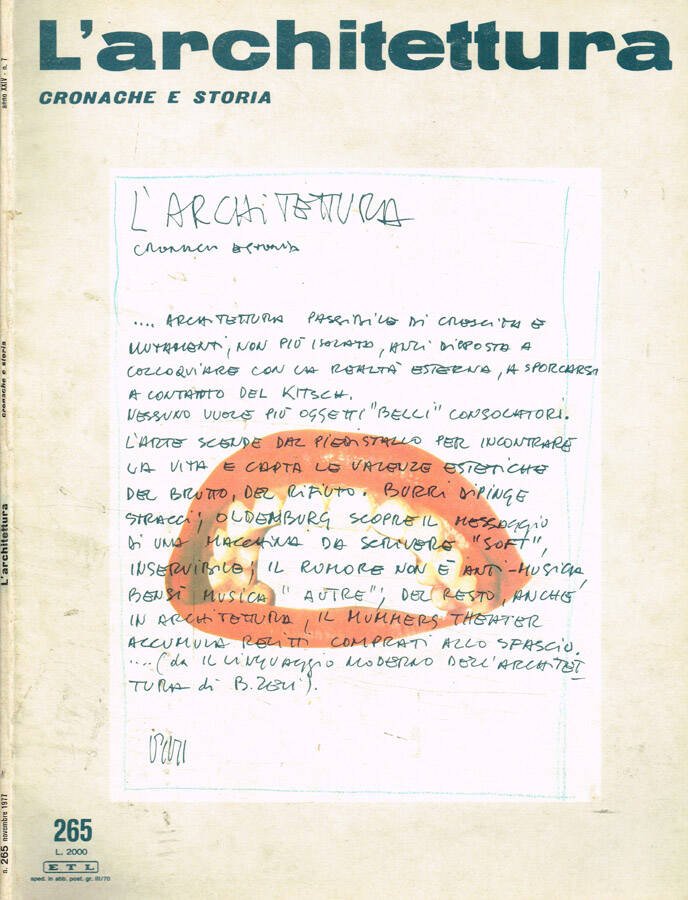 L'architettura
CRONACHE E STORIA
L'ARCHITETTURA
CRONACHE E STORIA
.... ARCHITETTURA PASSIBILE DI CRESCITA E
MUTAMENTI, NON PIÙ ISOLATA, ANZI DISPOSTA A
COLLOQUIARE CON LA REALTÀ ESTERNA, A SPORCARSI
A CONTATTO DEL KITSCH.
NESSUNO VUOLE PIÙ OGGETTI "BELLI" CONSOLATORI.
L'ARTE SCENDE DAL PIEDISTALLO PER INCONTRARE
LA VITA E CAPTA LE VALENZE ESTETICHE
DEL BRUTTO, DEL RIFIUTO. BURRI DIPINGE
STRACCI; OLDEMBURG SCOPRE IL MESSAGGIO
DI UNA MACCHINA DA SCRIVERE "SOFT",
INSERVIBILE; IL RUMORE NON È ANTI-MUSICA,
BENSÌ MUSICA "AUTRE"; DEL RESTO, ANCHE
IN ARCHITETTURA, IL MUMMERS THEATER
ACCUMULA RELITTI COMPRATI ALLO SFASCIO.
....(da IL LINGUAGGIO MODERNO DELL'ARCHITET
TURA di B. ZEVI).
265
L. 2000
ETL
sped. in abb. post. gr. III/70
anno XXIV - n. 7
cronache e storia
L'architettura
n. 265 novembre 1977